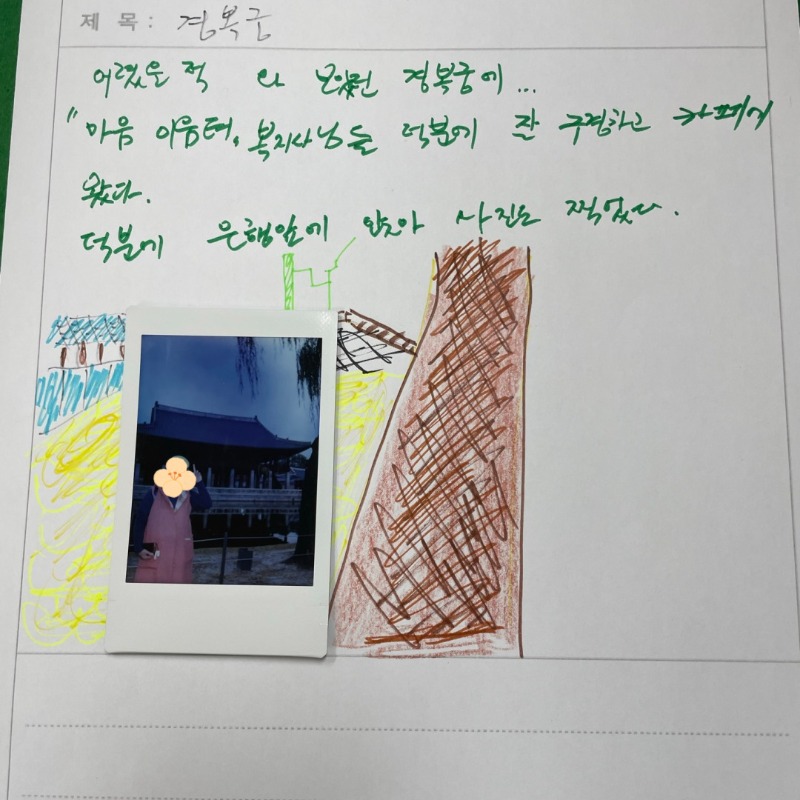 제 목 : 경복궁
어렸을 적 와 보았던 경복궁에...
"마음 이음터, 복지사님들 덕분에 잘 구경하고 카페에
왔다.
덕분에 은행앞에 앉아 사진도 찍었다.